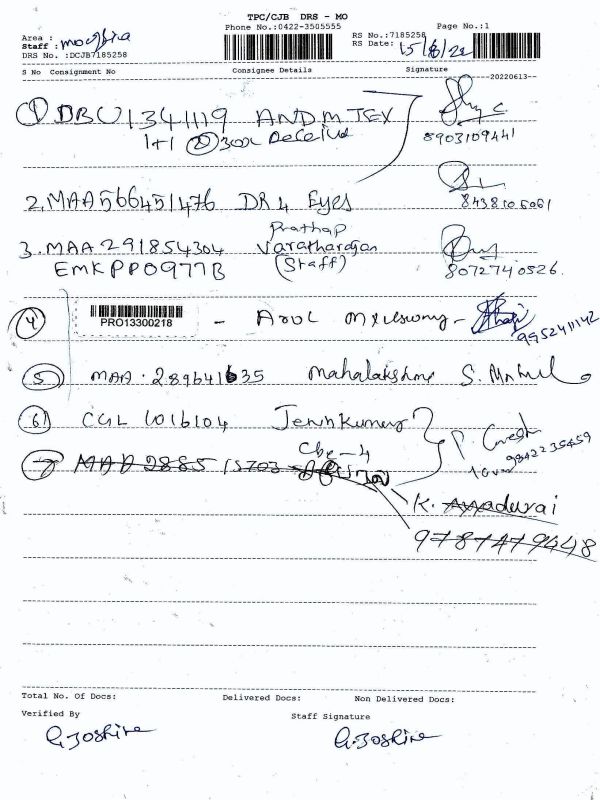 TPC/CJB DRS - MO
Phone No.:0422-3505555
Page No.:1
Area :
Staff :
DRS No. :DCJB7185258
RS No.:7185258
RS Date: 15/6/22
S No Consignment No Consignee Details Signature
20220613--
① DBC 1341119 ANDM TEX
1+1
8903109441
2. MAA566451476 DR 4 Eyes
8438105061
3. MAA 291854304 Prathap Varatharajan
EMKPP0977B (Staff)
8072740526.
④ PRO13300218 - Arul
9952411142
⑤ MAA. 289641635 Mahalakshmi S.
⑥ CGL 1016104 Jenithkumar
P. Ganesh
9842235459
⑦ MAA 2885 15703 Cbe-4
K. Annadurai
9787479448
Total No. Of Docs: Delivered Docs: Non Delivered Docs:
Verified By Staff Signature
G.Joshine G.Joshine